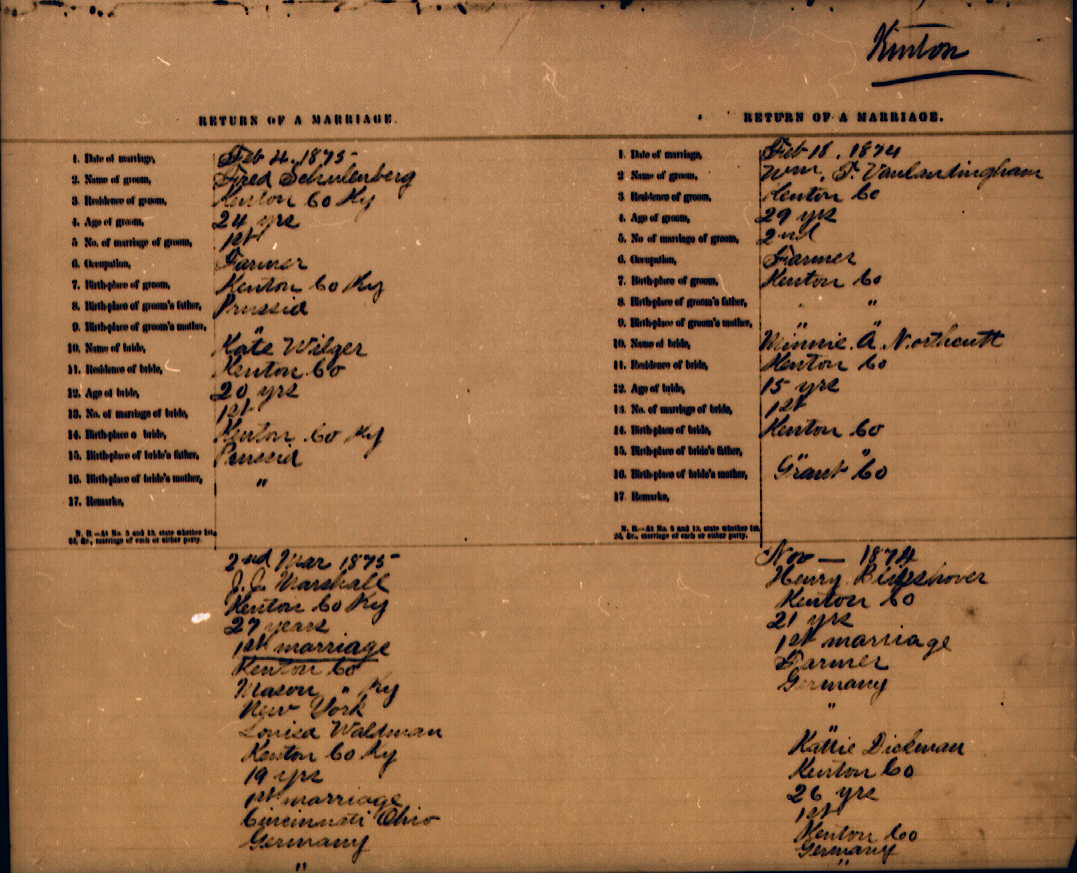 Kenton
RETURN OF A MARRIAGE.
1. Date of marriage, Feb 4, 1875
2. Name of groom, Fred Schulenberg
3. Residence of groom, Kenton Co Ky
4. Age of groom, 24 yrs
5 No. of marriage of groom, 1st
6. Occupation, Farmer
7. Birth-place of groom, Kenton Co Ky
8. Birth-place of groom's father, Prussia
9. Birth-place of groom's mother, "
10. Name of bride, Kate Wilger
11. Residence of bride, Kenton Co
12. Age of bride, 20 yrs
13. No. of marriage of bride, 1st
14. Birth-place o bride, Kenton Co Ky
15. Birth-place of bride's father, Prussia
16. Birth-place of bride's mother, "
17. Remarks,
N. B.—At No. 5 and 13, state whether 1st,
2d, &c., marriage of each or either party.
2nd Mar 1875
J. J. Marshall
Kenton Co Ky
27 years
1st marriage
Kenton Co
Mason " Ky
New York
Louisa Waldman
Kenton Co Ky
19 yrs
1st marriage
Cincinnati Ohio
Germany
"
RETURN OF A MARRIAGE.
1. Date of marriage, Feb 18, 1874
2 Name of groom, Wm. T. Vanlandingham
3 Residence of groom, Kenton Co
4. Age of groom, 29 yrs
5. No. of marriage of groom, 2nd
6. Occupation, Farmer
7. Birth-place of groom, Kenton Co
8. Birth-place of groom's father, " "
9. Birth-place of groom's mother, " "
10. Name of bride, Minnie A Northcutt
11. Residence of bride, Kenton Co
12. Age of bride, 15 yrs
13. No. of marriage of bride, 1st
14. Birth-place of bride, Kenton Co
15. Birth-place of bride's father, " "
16. Birth-place of bride's mother, Grant Co
17 Remarks,
N. B.—At No. 5 and 13, state whether 1st,
2d, &c., marriage of each or either party.
Nov — 1874
Henry
Kenton Co
21 yrs
1st marriage
Farmer
Germany
"
"
Kattie Dickman
Kenton Co
26 yrs
1st
Kenton Co
Germany
"